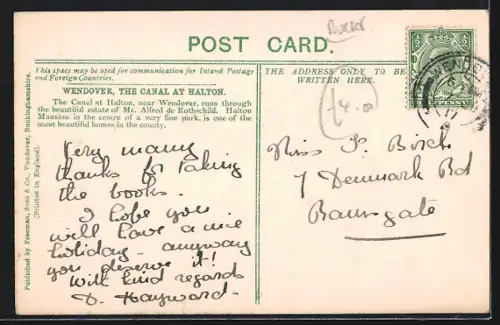 Bucks.
POST CARD.
This space may be used for communication for Inland Postage
and Foreign Countries.
WENDOVER, THE CANAL AT HALTON.
The Canal at Halton, near Wendover, runs through
the beautiful estate of Mr. Alfred de Rothschild. Halton
Mansion in the centre of a very fine park, is one of the
most beautiful homes in the county.
Very many
thanks for taking
the books.
I hope you
will have a nice
holiday. anyway
you deserve it!
With kind regards
D. Hayward.
THE ADDRESS ONLY TO BE
WRITTEN HERE.
£4.00
Miss F. Birch
7 Denmark Rd
Ramsgate
PENNY
WENDO
17
Published by Freeman, Sons & Co., Wendover, Buckinghamshire.
(Printed in England).